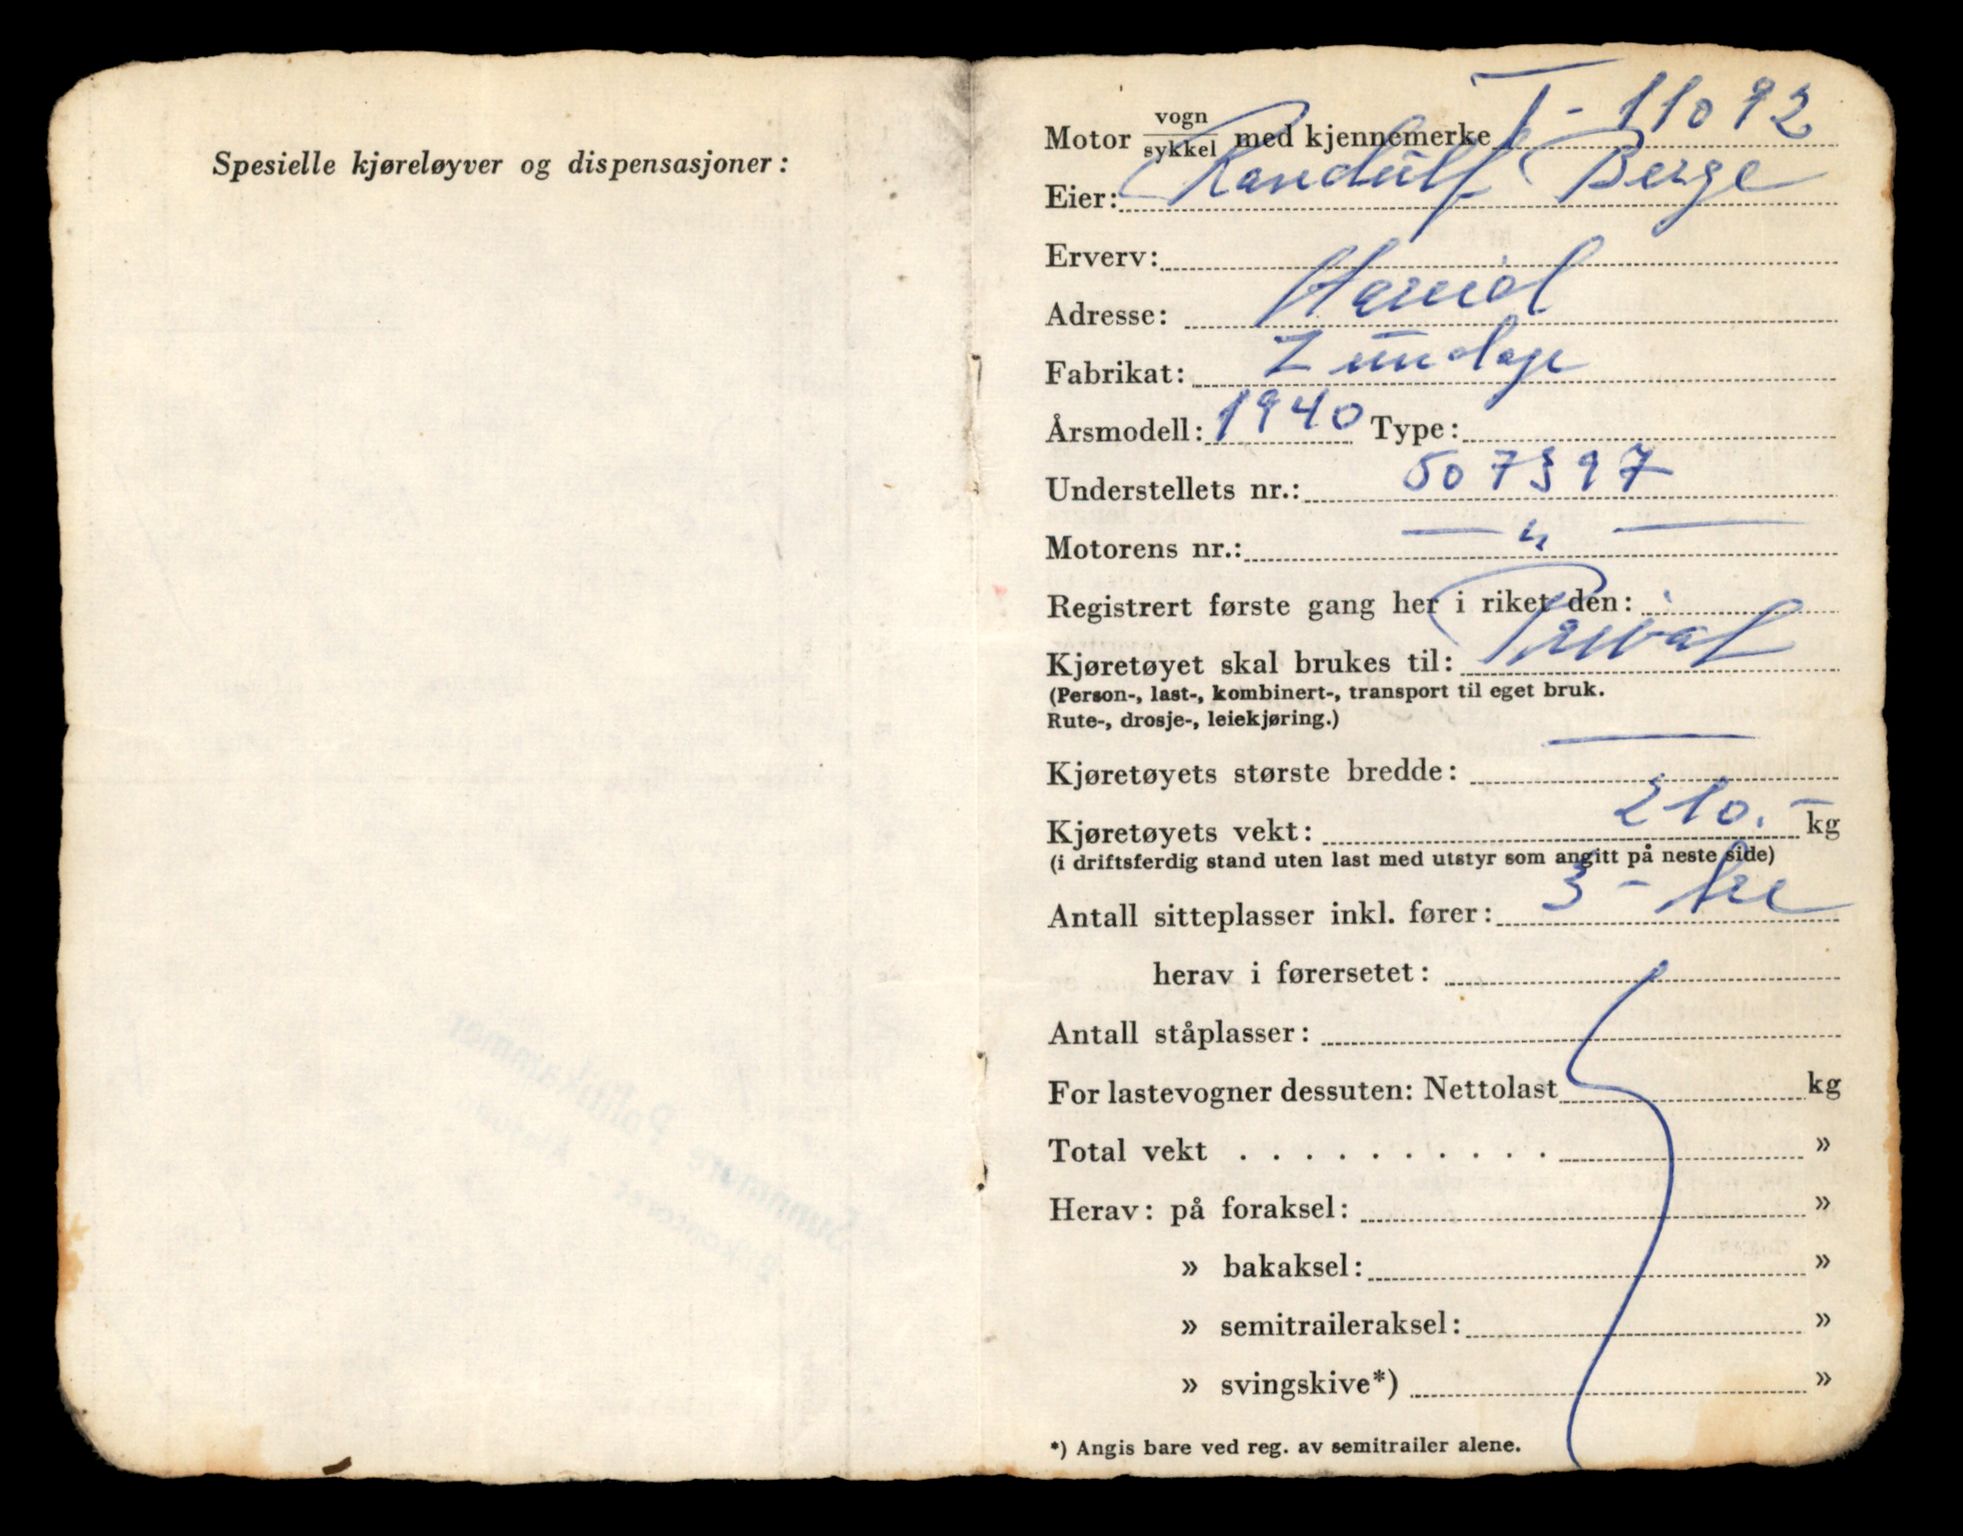 Spesielle kjøreløyver og dispensasjoner:
Motor vogn/sykkel med kjennemerke T-11092
Eier: Randulf Berge
Erverv:
Adresse:
Fabrikat: Zündapp
Årsmodell: 1940 Type:
Understellets nr.: 507397
Motorens nr.: — " —
Registrert første gang her i riket den:
Kjøretøyet skal brukes til: Privat
(Person-, last-, kombinert-, transport til eget bruk.
Rute-, drosje-, leiekjøring.)
Kjøretøyets største bredde: —
Kjøretøyets vekt: 210.- kg
(i driftsferdig stand uten last med utstyr som angitt på neste side)
Antall sitteplasser inkl. fører: 3 - tre
herav i førersetet:
Antall ståplasser:
For lastevogner dessuten: Nettolast kg
Total vekt . . . . . . . . . . »
Herav: på foraksel: »
» bakaksel: »
» semitraileraksel: »
» svingskive*) »
*) Angis bare ved reg. av semitrailer alene.
Sunnmøre Politikammer